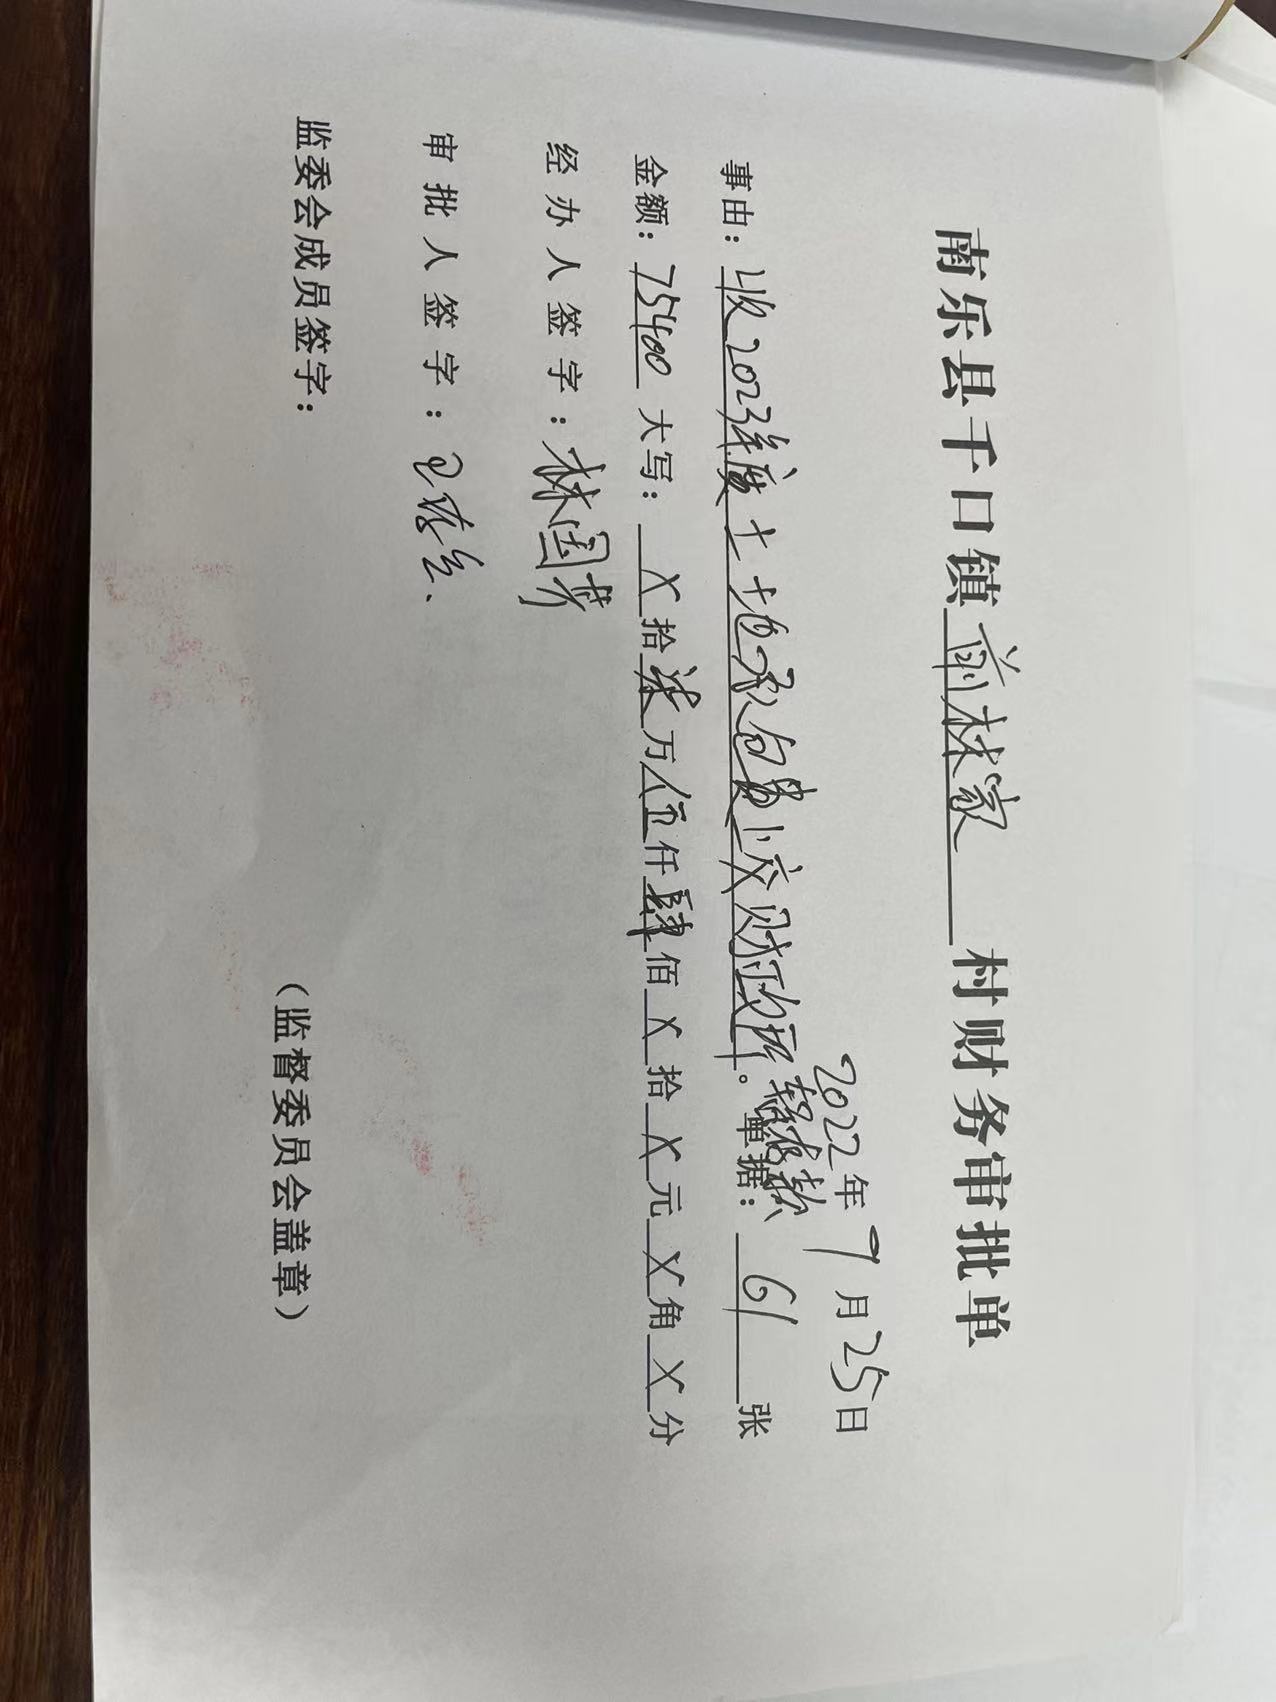 南乐县千口镇前林家村财务审批单
2022年7月25日
事由:收2023年度土地承包费上交财政所 。单据:61张
金额:75400大写:X拾柒万伍仟肆佰X拾X元X角X分
经办人签字:林国芳
审批人签字:
监委会成员签字:
(监督委员会盖章)